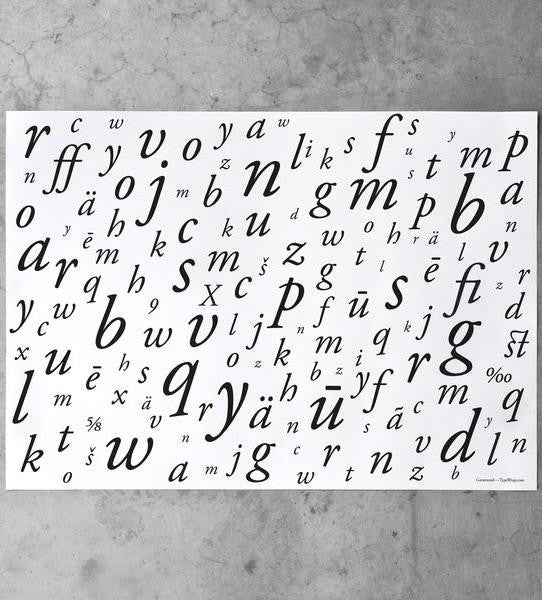 r c w y v o y a w l i k s f s y m p
n ff z u s t
o ä o j m b n g m p b a
y ē h k c k u d w o h r ä n
a r m s m š z g t l ē l v r
y c w q h 9 X c p f ū s fi z d
b w v l j n m q k j g st
x u ē h s o z k b z i y f r ‰
l m x ä q r y ä h n ū s ã c m q
k t ⅝ v n c v d y l n
o š w a m j g w r t n z b
Garamond — TypeWrap.com